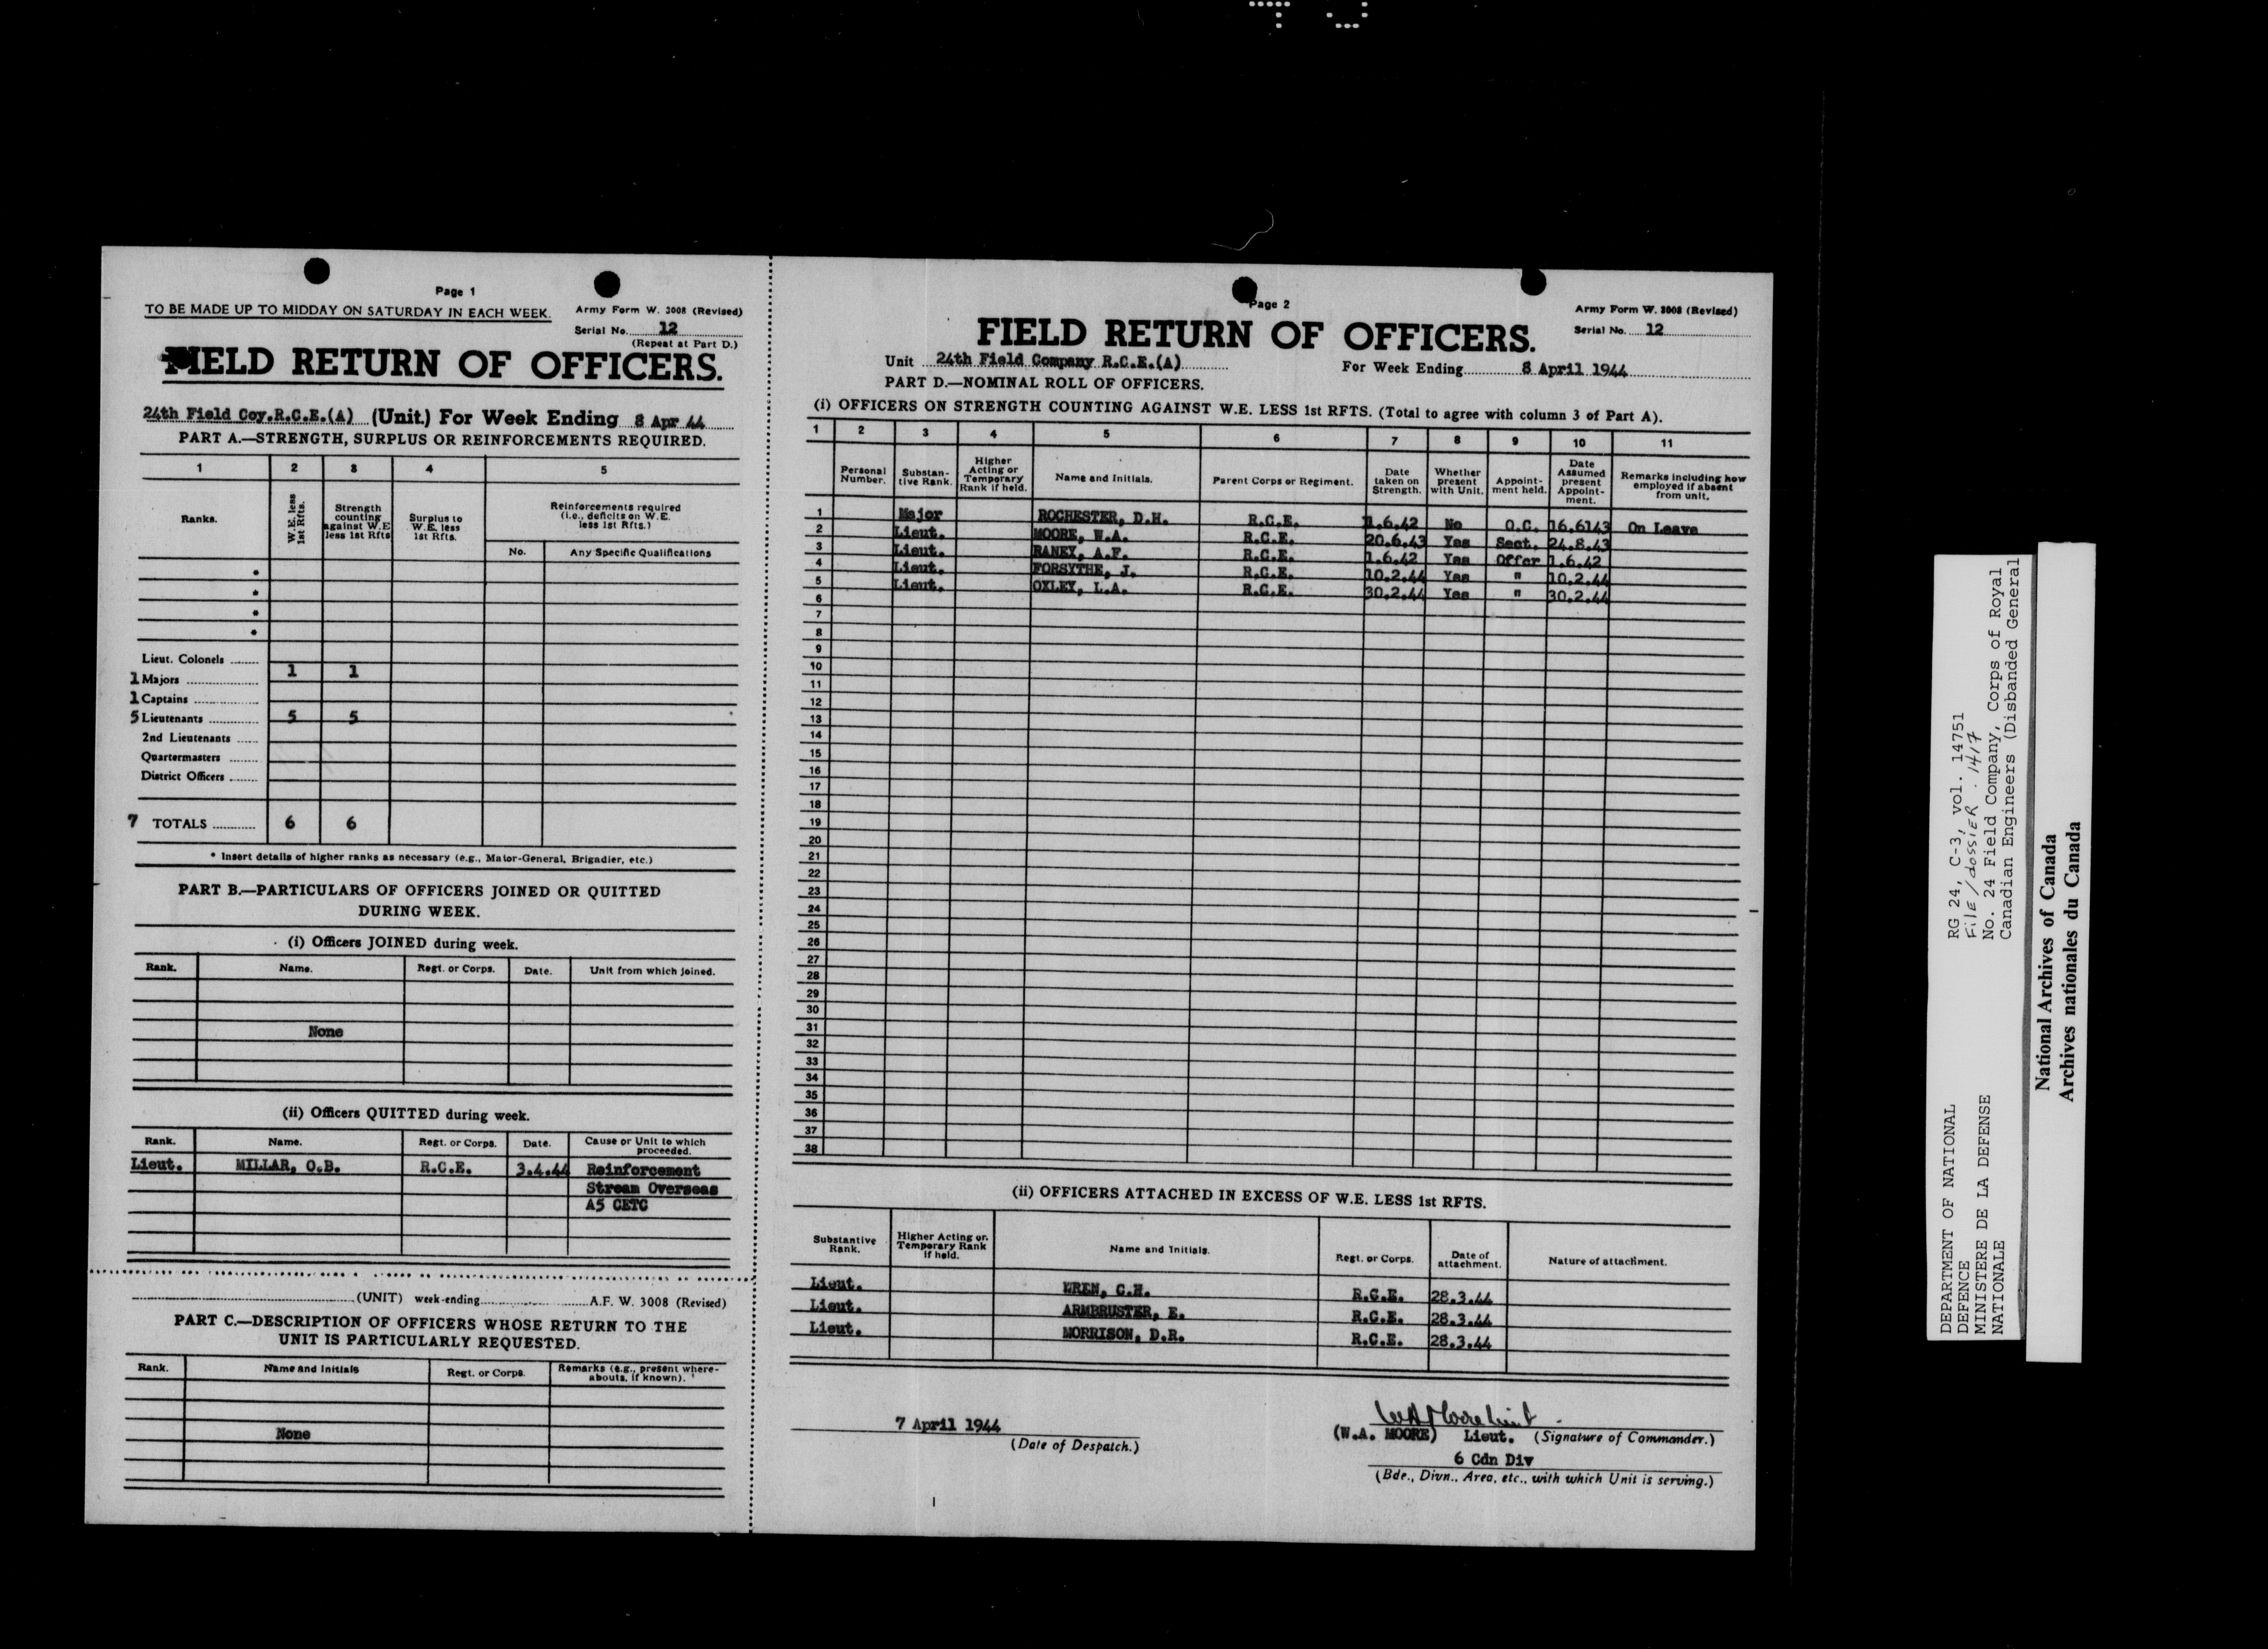 Page 1
TO BE MADE UP TO MIDDAY ON SATURDAY IN EACH WEEK.
Army Form W. 3008 (Revised)
Serial No. 12
(Repeat at Part D.)
FIELD RETURN OF OFFICERS.
24th Field Coy.R.C.E.(A) (Unit.) For Week Ending 8 Apr 44
PART A.—STRENGTH, SURPLUS OR REINFORCEMENTS REQUIRED.
1 2 3 4 5
Ranks. W.E. less 1st Rfts. Strength counting against W.E. less 1st Rfts Surplus to W.E. less 1st Rfts. Reinforcements required (i.e., deficits on W.E. less 1st Rfts.)
No. Any Specific Qualifications
*
*
*
*
Lieut. Colonels
1 Majors 1 1
1 Captains
5 Lieutenants 5 5
2nd Lieutenants
Quartermasters
District Officers
7 TOTALS 6 6
* Insert details of higher ranks as necessary (e.g., Major-General, Brigadier, etc.)
PART B.—PARTICULARS OF OFFICERS JOINED OR QUITTED
DURING WEEK.
(i) Officers JOINED during week.
Rank. Name. Regt. or Corps. Date. Unit from which joined.
None
(ii) Officers QUITTED during week.
Rank. Name. Regt. or Corps. Date. Cause or Unit to which proceeded.
Lieut. MILLAR, O.B. R.C.E. 3.4.44 Reinforcement
Stream Overseas
A5 CETC
(UNIT) week-ending A.F. W. 3008 (Revised)
PART C.—DESCRIPTION OF OFFICERS WHOSE RETURN TO THE
UNIT IS PARTICULARLY REQUESTED.
Rank. Name and Initials Regt. or Corps. Remarks (e.g., present whereabouts, if known).
None
Page 2
Army Form W. 3008 (Revised)
Serial No. 12
FIELD RETURN OF OFFICERS.
Unit 24th Field Company R.C.E.(A) For Week Ending 8 April 1944
PART D.—NOMINAL ROLL OF OFFICERS.
(i) OFFICERS ON STRENGTH COUNTING AGAINST W.E. LESS 1st RFTS. (Total to agree with column 3 of Part A).
1 2 3 4 5 6 7 8 9 10 11
Personal Number. Substantive Rank. Higher Acting or Temporary Rank if held. Name and Initials. Parent Corps or Regiment. Date taken on Strength. Whether present with Unit. Appointment held. Date Assumed present Appointment. Remarks including how employed if absent from unit.
1 Major ROCHESTER, D.H. R.C.E. 1.6.42 No O.C. 16.6143 On Leave
2 Lieut. MOORE, W.A. R.C.E. 20.6.43 Yes Sect. 24.8.43
3 Lieut. RANEY, A.F. R.C.E. 1.6.42 Yes Offcr 1.6.42
4 Lieut. FORSYTHE, J. R.C.E. 10.2.44 Yes " 10.2.44
5 Lieut. OXLEY, L.A. R.C.E. 30.2.44 Yes " 30.2.44
6
7
8
9
10
11
12
13
14
15
16
17
18
19
20
21
22
23
24
25
26
27
28
29
30
31
32
33
34
35
36
37
38
(ii) OFFICERS ATTACHED IN EXCESS OF W.E. LESS 1st RFTS.
Substantive Rank. Higher Acting or Temporary Rank if held. Name and Initials. Regt. or Corps. Date of attachment. Nature of attachment.
Lieut. WREN, C.H. R.C.E. 28.3.44
Lieut. ARMBRUSTER, E. R.C.E. 28.3.44
Lieut. MORRISON, D.R. R.C.E. 28.3.44
7 April 1944
(Date of Despatch.)
WA Moore Lieut
(W.A. MOORE) Lieut. (Signature of Commander.)
6 Cdn Div
(Bde., Divn., Area, etc., with which Unit is serving.)
DEPARTMENT OF NATIONAL
DEFENCE
MINISTERE DE LA DEFENSE
NATIONALE
RG 24, C-3, vol. 14751
FilE/dossiER . 1417
No. 24 Field Company, Corps of Royal
Canadian Engineers (Disbanded General
National Archives of Canada
Archives nationales du Canada